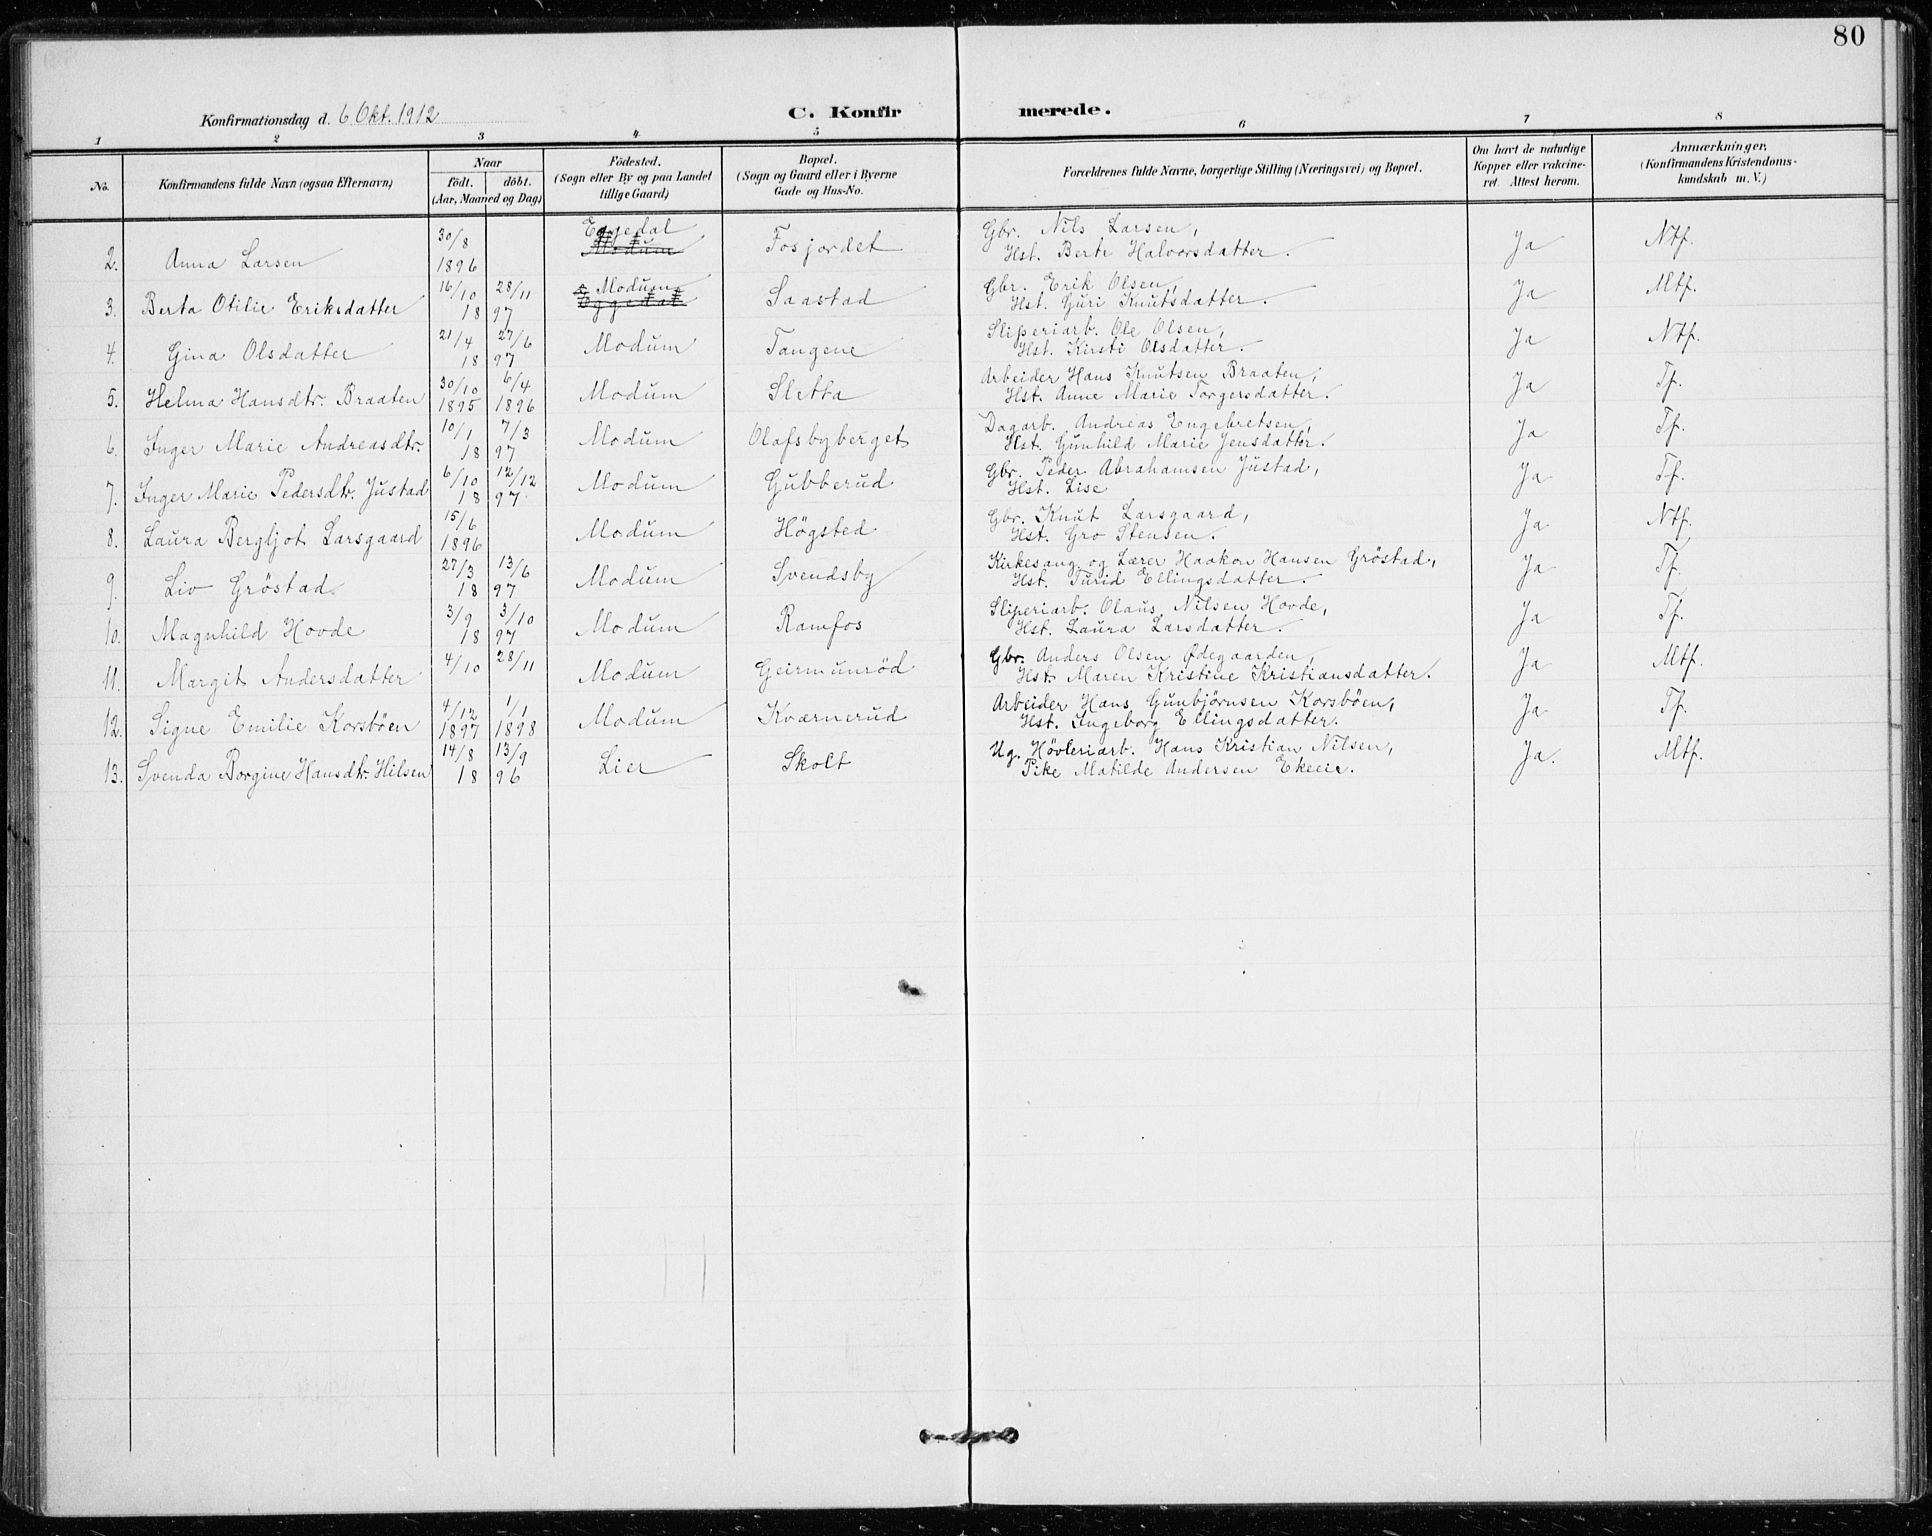 80
Konfirmationsdag d. 6 Okt. 1912
C. Konfirmerede.
1 2 3 4 5 6 7 8
No.
Konfirmandens fulde Navn (ogsaa Efternavn)
Naar
födt. döbt.
(Aar, Maaned og Dag)
Födested.
(Sogn eller By og paa Landet
tillige Gaard)
Bopæl.
(Sogn og Gaard eller i Byerne
Gade og Hus-No.
Forældrenes fulde Navne, borgerlige Stilling (Næringsvei) og Bopæl.
Om havt de naturlige
Kopper eller vakcine-
ret. Attest herom.
Anmærkninger.
(Konfirmandens Kristendoms-
kundskab m. V.)
30/8 Eggedal Gbr. Nils Larsen,
2. Anna Larsen 1896 Modum Fosjordet Hst. Berte Halvorsdatter. Ja Ntf.
16/10 28/11 Modum Gbr. Erik Olsen,
3. Berta Otilie Eriksdatter 18 97 Eggedal Saastad Hst. Guri Knutsdatter. Ja Mtf.
21/4 27/6 Sliperiarb. Ole Olsen,
4. Gina Olsdatter 18 97 Modum Tangene Hst. Kirsti Olsdatter. Ja Ntf.
30/10 6/4 Arbeider Hans Knutsen Braaten,
5. Helma Hansdtr. Braaten 1895 1896 Modum Sletta Hst. Anne Marie Torgersdatter. Ja Tf.
10/1 7/3 Dagarb. Andreas Engebretsen,
6. Inger Marie Andreasdtr. 18 97 Modum Olafsbyberget Hst. Gunhild Marie Jensdatter. Ja Tf.
6/10 12/12 Gbr. Peder Abrahamsen Justad,
7. Inger Marie Pedersdtr. Justad 18 97 Modum Gubberud Hst. Lise Ja Tf.
15/6 Gbr. Knut Larsgaard,
8. Laura Bergljot Larsgaard 1896 Modum Högsted Hst. Gro Stensen. Ja Ntf.
27/3 13/6 Kirkesang. og Lærer Haakon Hansen Gröstad,
9. Liv Gröstad. 18 97 Modum Svendsby Hst. Turid Ellingsdatter. Ja Tf.
3/9 3/10 Sliperiarb. Olaus Nilsen Hovde,
10. Magnhild Hovde 18 97 Modum Ramfos Hst. Laura Larsdatter. Ja Tf.
4/10 28/11 Gbr. Anders Olsen Ødegaarden,
11. Margit Andersdatter Modum Geirmunröd Hst. Maren Kristine Kristiansdatter. Ja Mtf.
4/12 1/1 Arbeider Hans Gunbjörnsen Korsböen,
12. Signe Emilie Korsböen 1897 1898 Modum Kværnerud Hst. Ingeborg Ellingsdatter. Ja Tf.
14/8 13/9 Ug. Hövleriarb. Hans Kristian Nilsen,
13. Svenda Borgine Hansdtr. Hilsen 18 96 Lier Skolt Pike Matilde Andersen Ekeeie. Ja. Mtf.